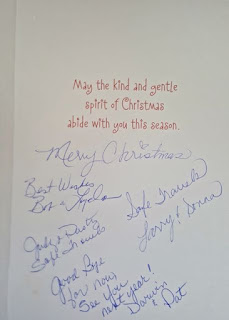 May the kind and gentle
spirit of Christmas
abide with you this season.
Merry Christmas
Best Wishes
Safe Travels
Larry & Donna
Safe Travels
Good Bye
for now
See You
next year!
Darwin
& Pat